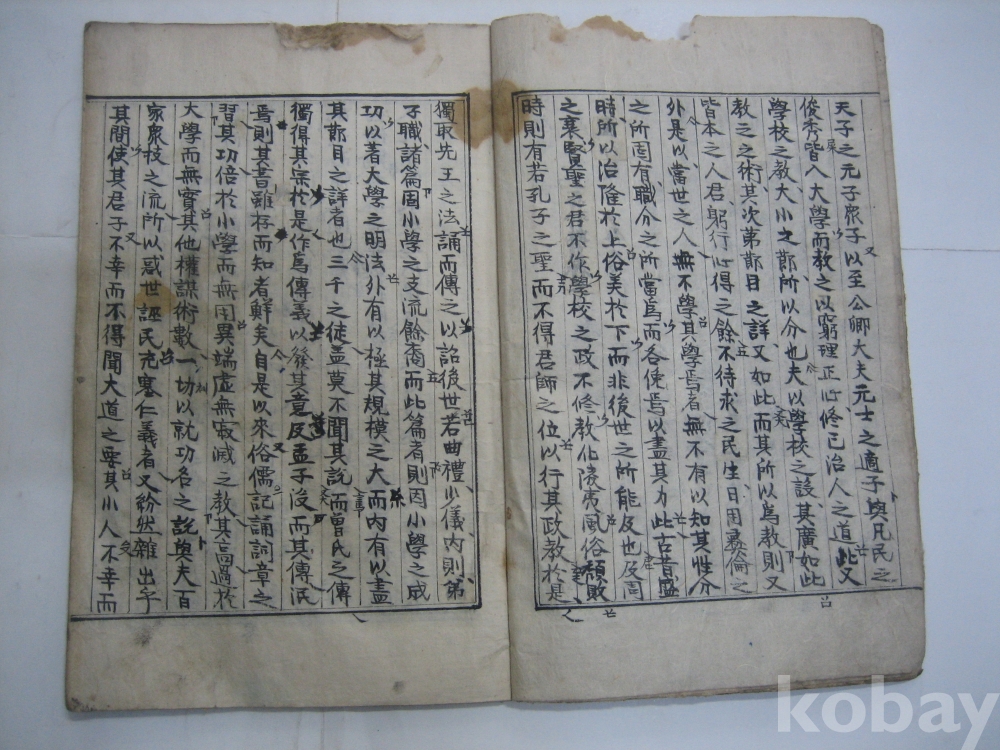 天子之元子衆子以至公卿大夫元士之適子與凡民之
俊秀皆入大學而教之以窮理正心修己治人之道此又
學校之教大小之節所以分也夫以學校之設其廣如此
教之之術其次第節目之詳又如此而其所以爲教則又
皆本之人君躬行心得之餘不待求之民生日用彛倫之
外是以當世之人無不學其學焉者無不有以知其性分
之所固有職分之所當爲而各俛焉以盡其力此古昔盛
時所以治隆於上俗美於下而非後世之所能及也及周
之衰賢聖之君不作學校之政不修教化陵夷風俗頹敗
時則有若孔子之聖而不得君師之位以行其政教於是
獨取先王之法誦而傳之以詔後世若曲禮少儀內則第
子職諸篇固小學之支流餘裔而此篇者則因小學之成
功以著大學之明法外有以極其規模之大而內有以盡
其節目之詳者也三千之徒盖莫不聞其說而曾氏之傳
獨得其宗於是作爲傳義以發其意及孟子沒而其傳泯
焉則其書雖存而知者鮮矣自是以來俗儒記誦詞章之
習其功倍於小學而無用異端虛無寂滅之教其高過於
大學而無實其他權謀術數一切以就功名之說與夫百
家衆技之流所以惑世誣民充塞仁義者又紛然雜出乎
其間使其君子不幸而不得聞大道之要其小人不幸而
kobay